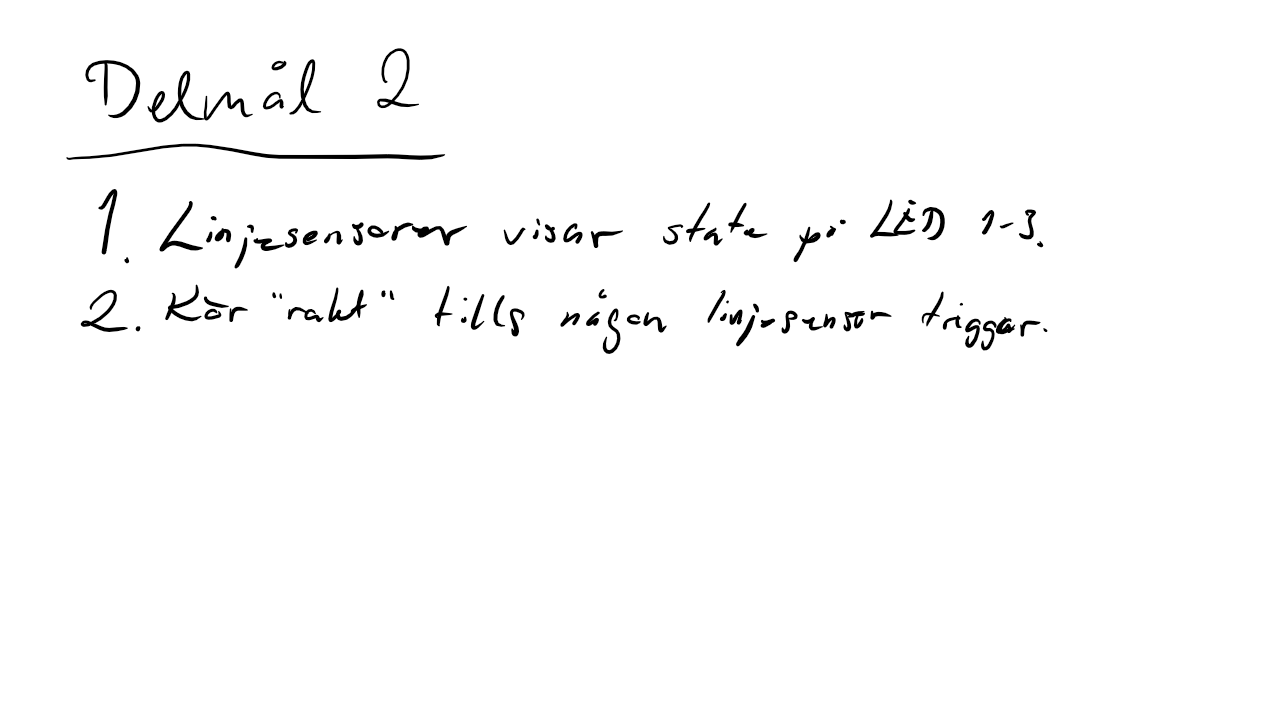 Delmål 2
1. Linjesensorer visar state på LED 1-3.
2. Kör "rakt" tills någon linjesensor triggar.